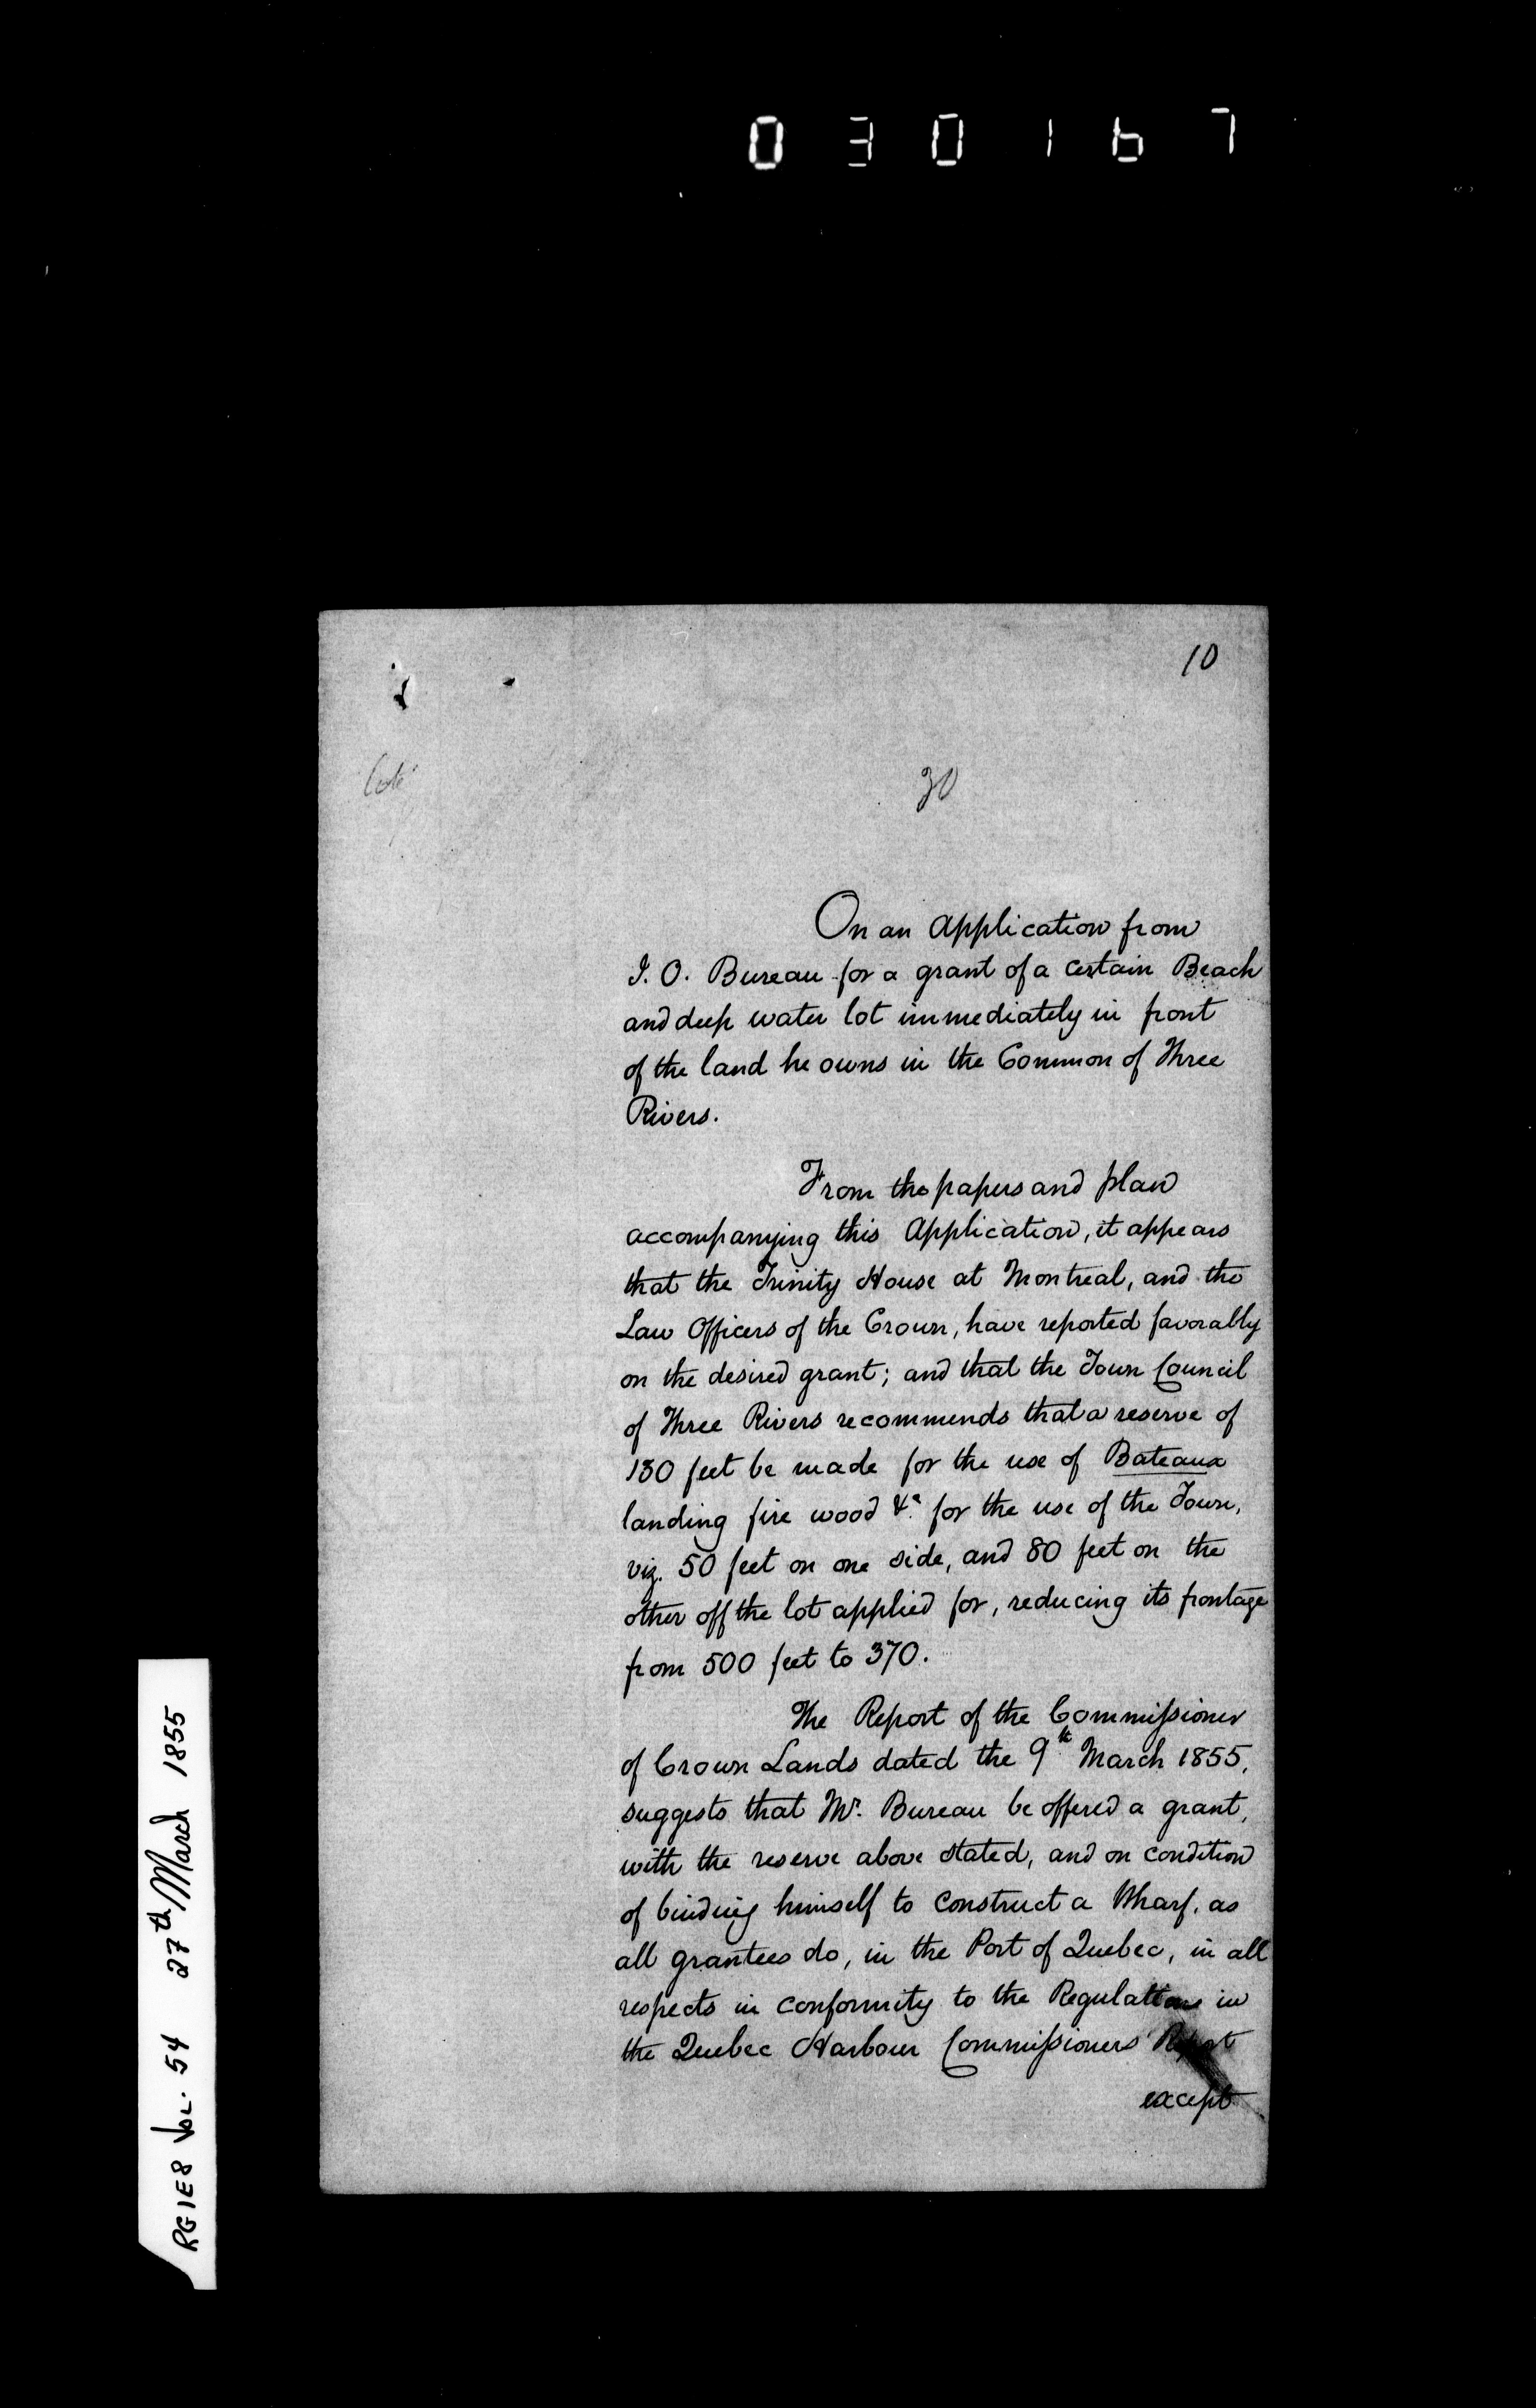 030167
10
30
On an Application from
J. O. Bureau for a grant of a certain Beach
and deep water lot immediately in front
of the land he owns in the Common of Three
Rivers.
From the papers and plan
accompanying this Application, it appears
that the Trinity House at Montreal, and the
Law Officers of the Crown, have reported favorably
on the desired grant; and that the Town Council
of Three Rivers recommends that a reserve of
130 feet be made for the use of Bateaux
landing fire wood &c. for the use of the Town,
viz. 50 feet on one side, and 80 feet on the
other off the lot applied for, reducing its frontage
from 500 feet to 370.
The Report of the Commissioner
of Crown Lands dated the 9th March 1855,
suggests that Mr. Bureau be offered a grant,
with the reserve above stated, and on condition
of binding himself to construct a Wharf, as
all grantees do, in the Port of Quebec, in all
respects in conformity to the Regulations in
the Quebec Harbour Commissioners' Report
except
RG1E8 Vol. 54 27th March 1855